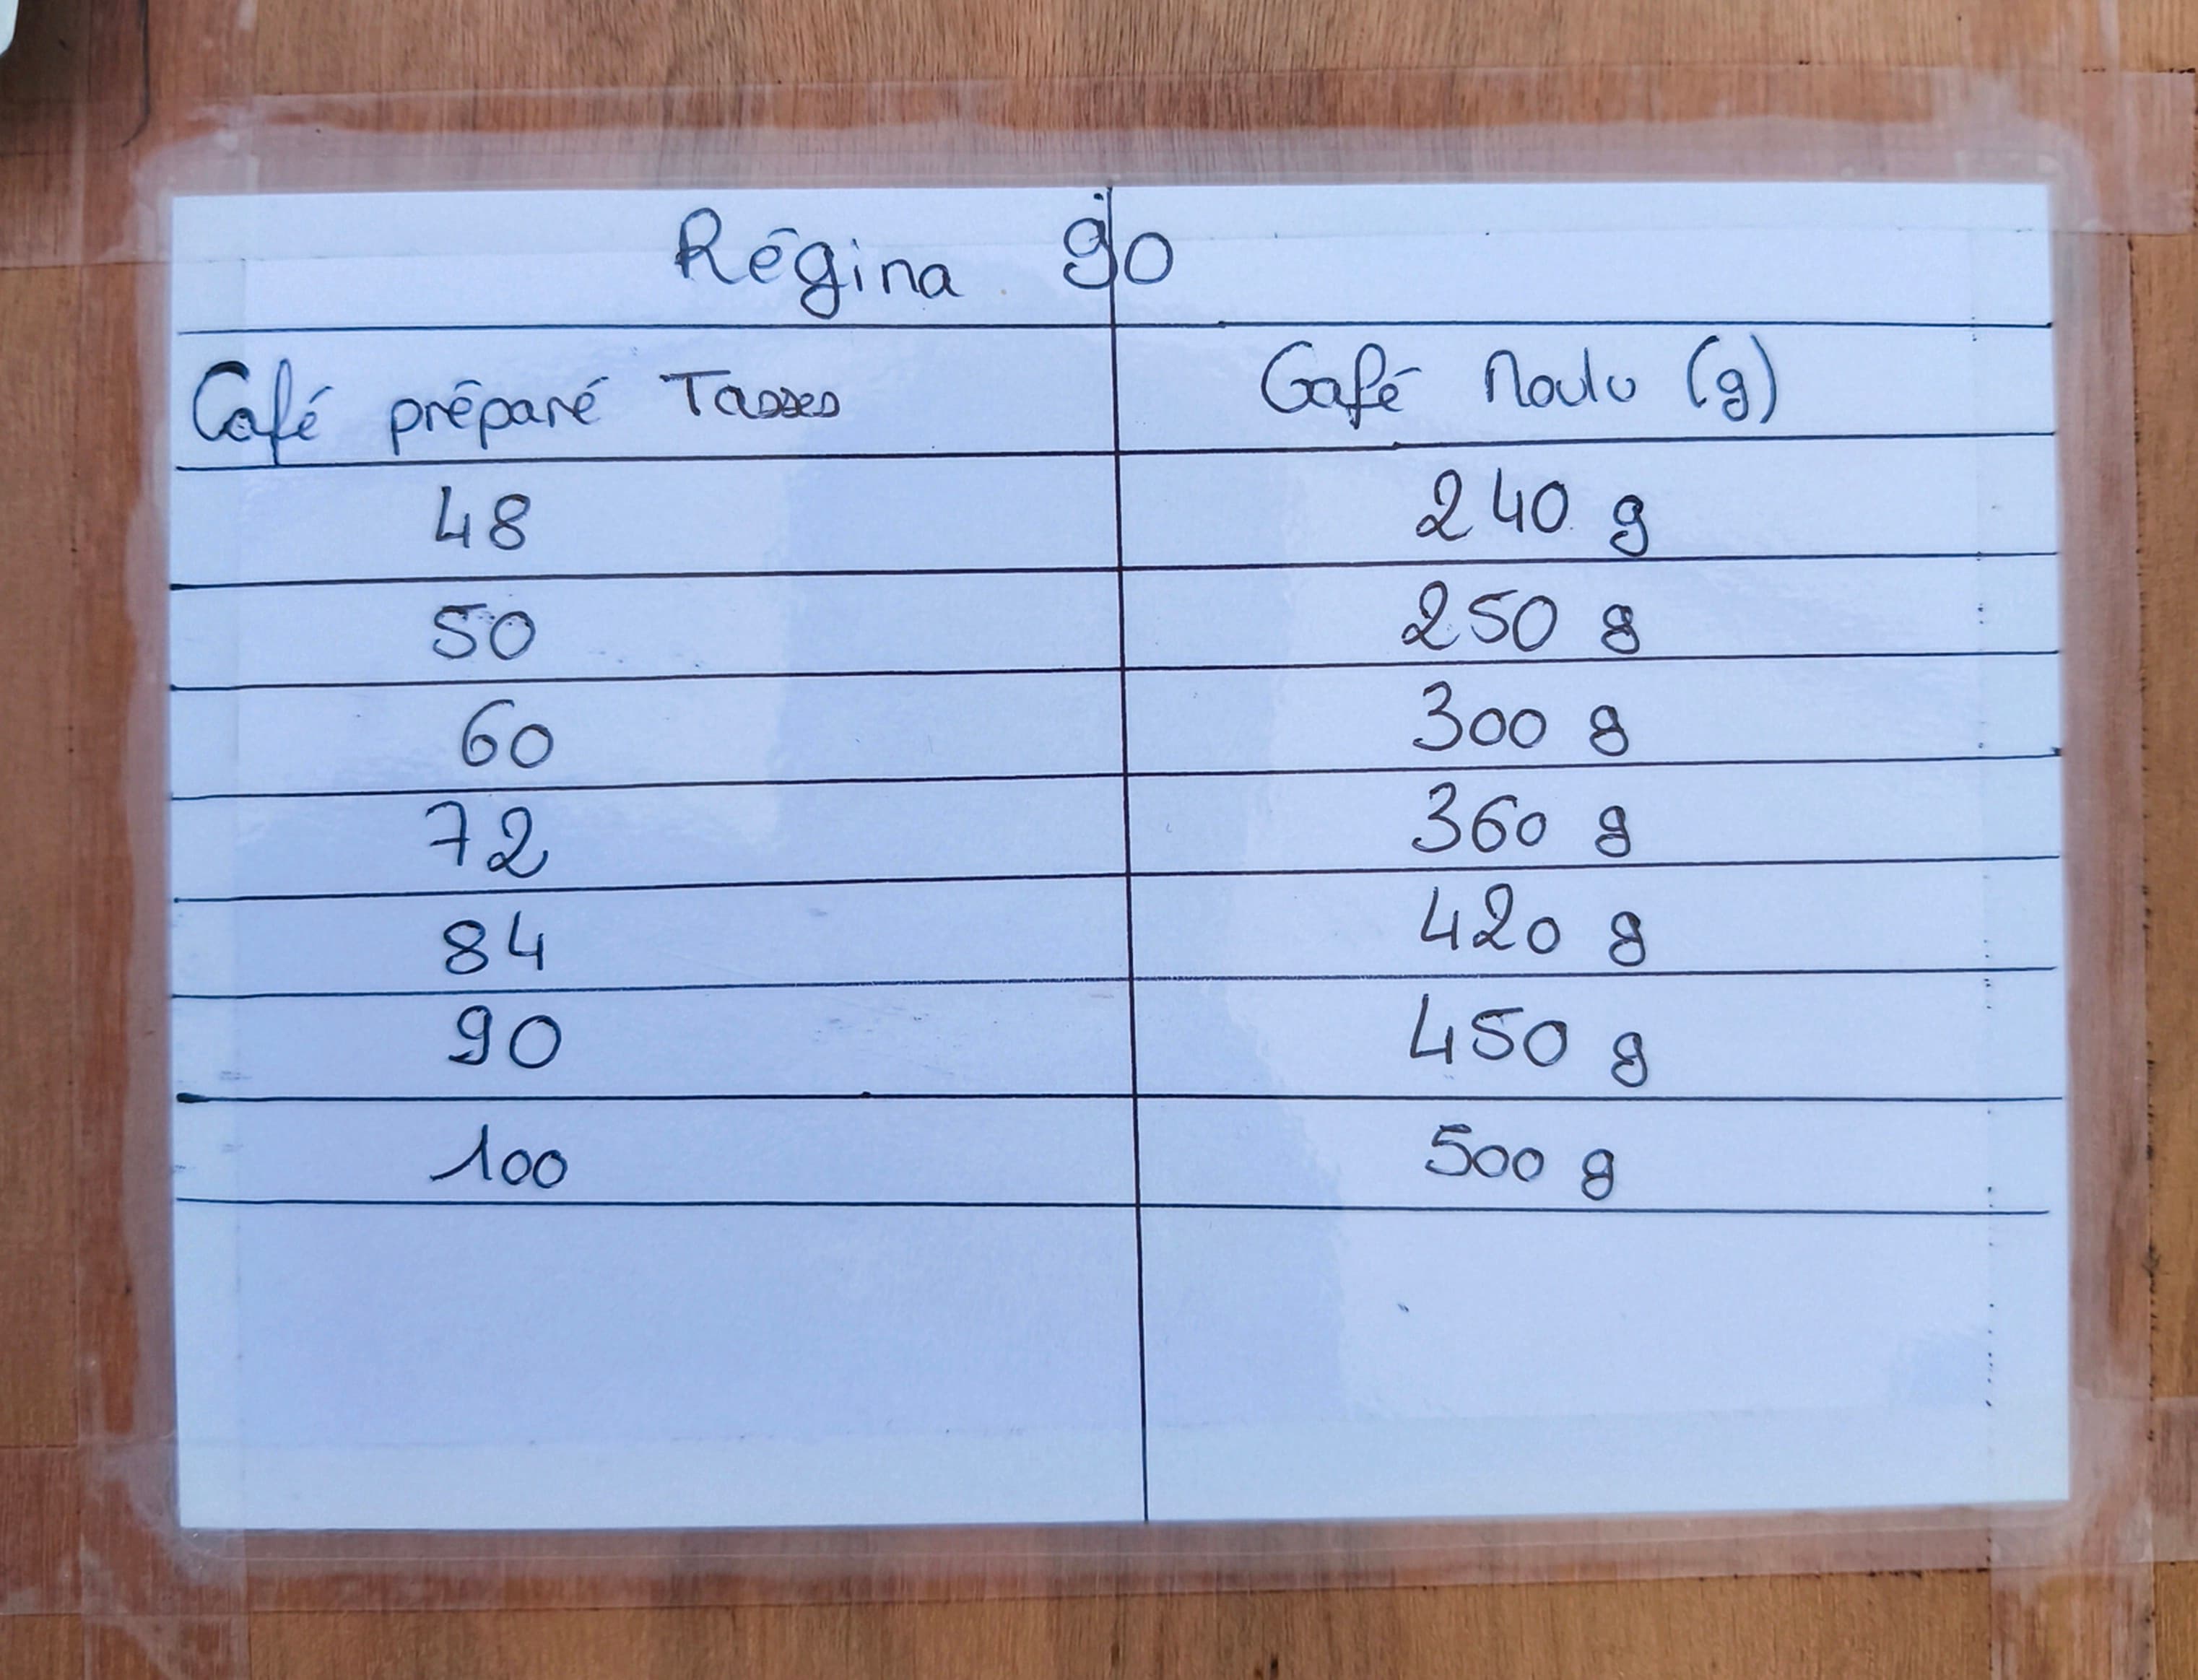 Régina 90
Café préparé Tasses Café Moulu (g)
48 240 g
50 250 g
60 300 g
72 360 g
84 420 g
90 450 g
100 500 g